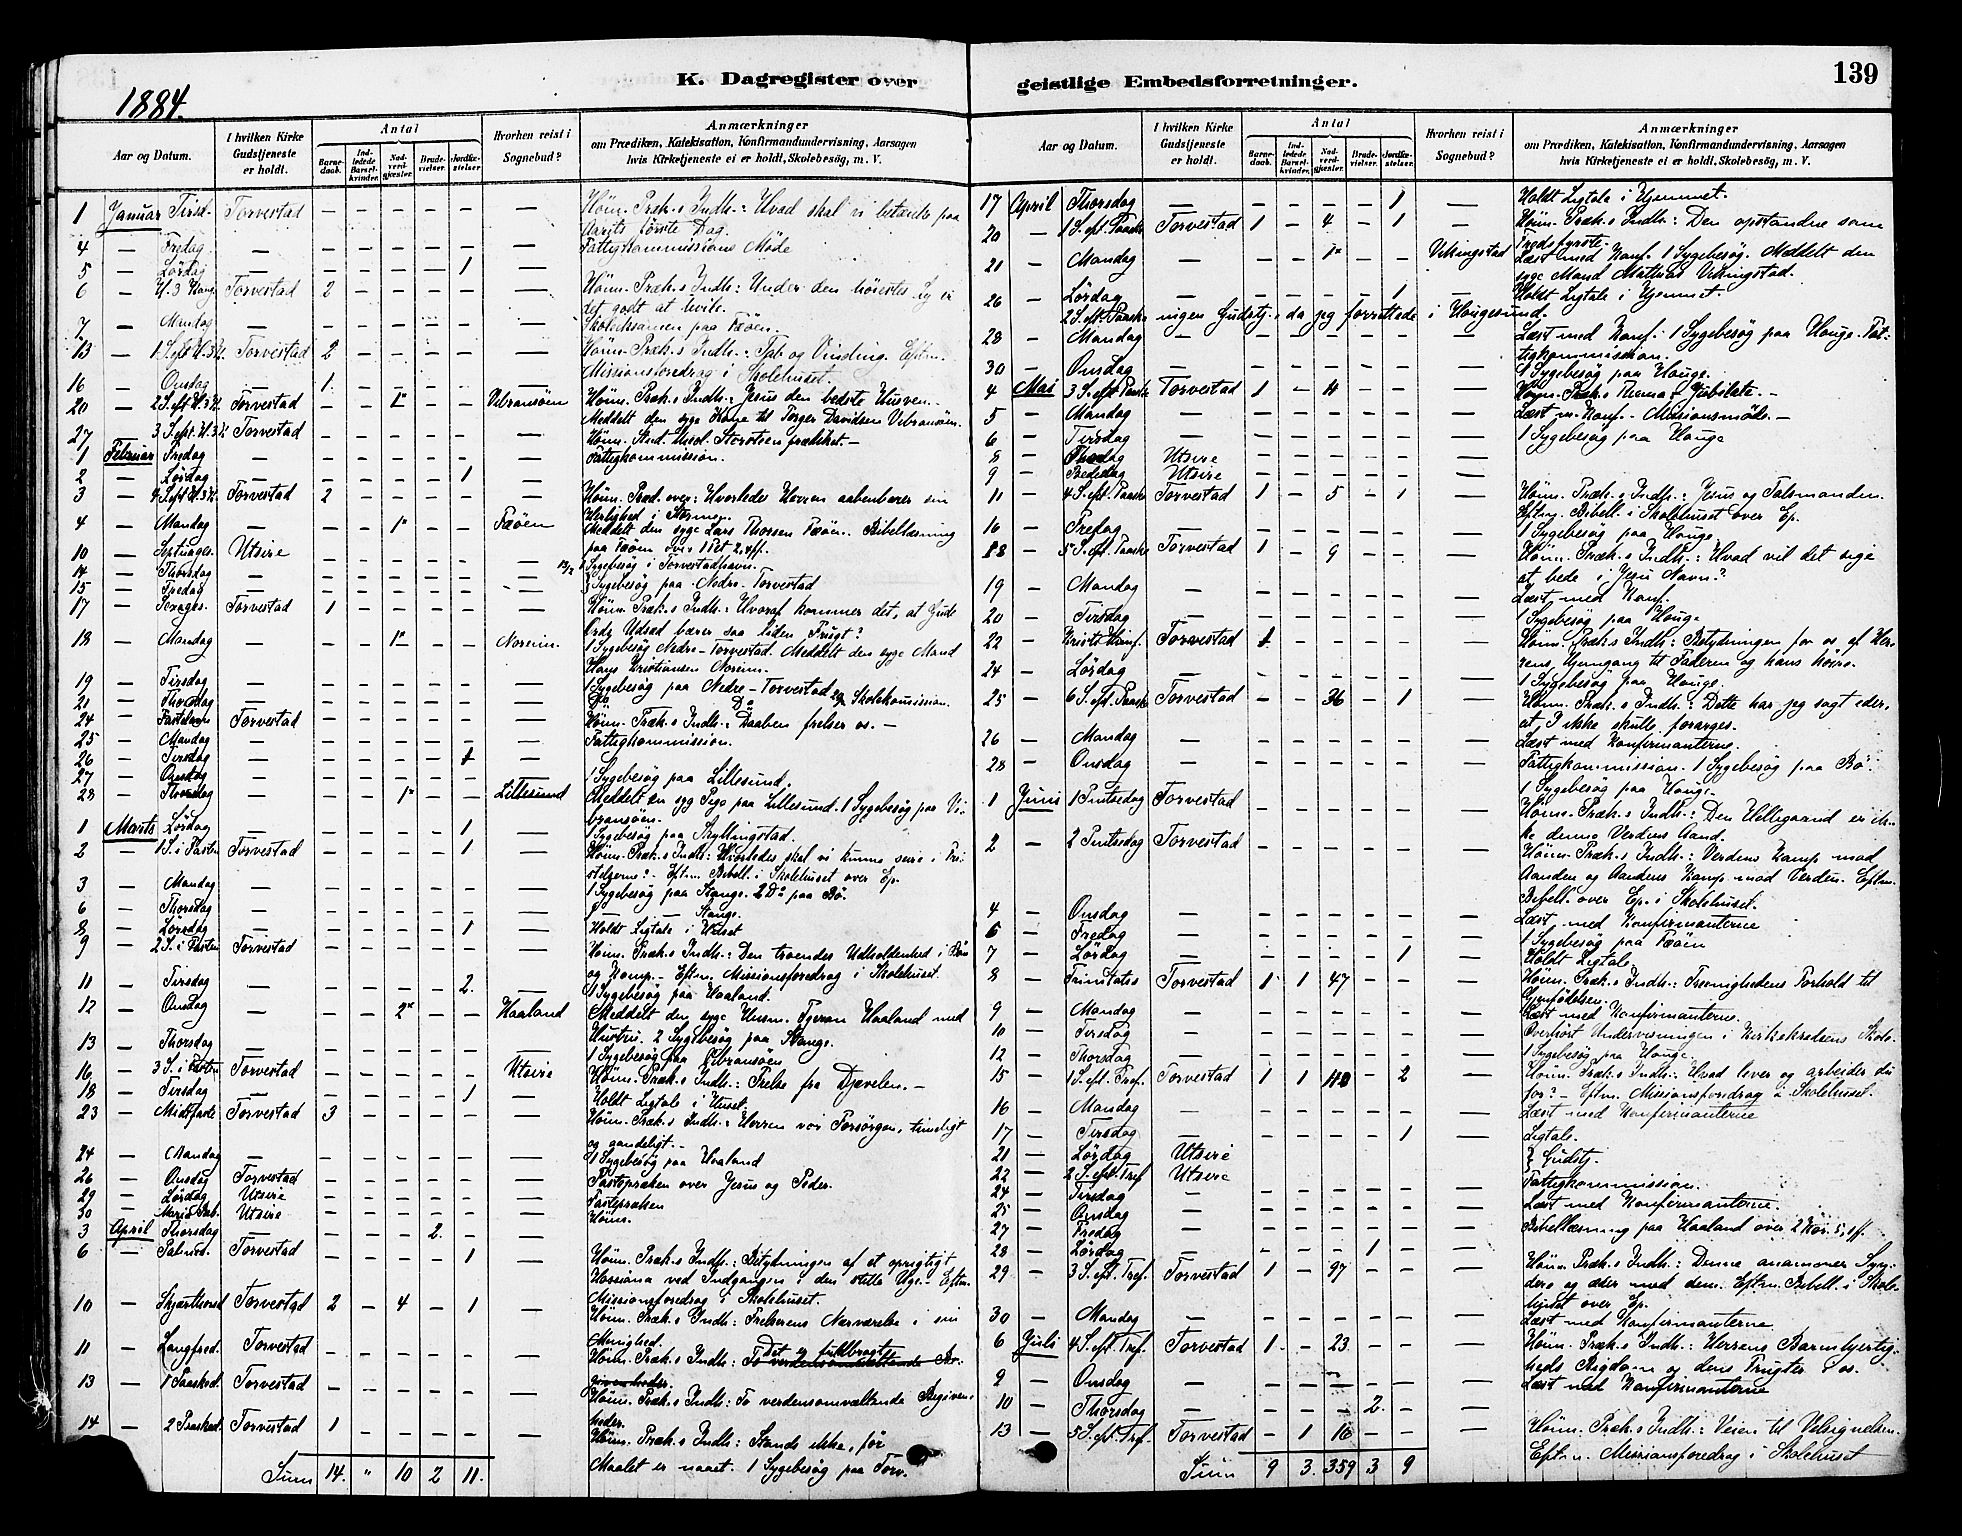 K. Dagregister over geistlige Embedsforretninger.
139
1884.
Aar og Datum.
I hvilken Kirke Gudstjeneste er holdt.
Antal
Barnedaab.
Indledede Barselkvinder.
Nadverdgjæster.
Brudevielser.
Jordfæstelser.
Hvorhen reist i Sognebud?
Anmærkninger
om Prædiken, Katekisation, Konfirmandundervisning, Aarsagen
hvis Kirketjeneste ei er holdt, Skolebesøg, m. V.
1 Januar Tirsd. Torvestad — — — — — — Høim. Præk.s Indh.: Hvad skal vi betænke paa
Aarets første Dag.
4 — Fredag — — — — — — — Fattigkommissions Møde
5 — Lørdag — — — — — 1 —
6 — H. 3 Kong. Torvestad 2 — — — — — Høim. Præk.s Indh.: Under den
det godt at hvile.
7 — Mandag — — — — — — — Skoleeksamen paa Fæøen.
13 — 1 S. eft. H.3K. Torvestad 2 — — — — — Høim. Præk.s Indh.: Tab og Vinding. Eftm.
Missionsforedrag i Skolehuset.
16 — Onsdag — 1 — — — — —
20 — 2 S. eft H.3K. Torvestad — — 1* — — Vibransøen Høim. Præk.s Indh.: Jesus den bedste Husven.
Meddelt den syge Kone til Torger Davidsen Vibransøen.
27 3 S. eft. H.3K. Torvestad — — — — — — Høim. Stud. prækket. —
1 Februar Fredag — — — — — — — Fattigkommission.
2 — Lørdag — — — — — 1 —
3 — 4 S. eft H.3K. Torvestad 2 — — — — — Høim. Præd. over: Hvorledes Herren aabenbarer sin
Herlighed i Stormen.
4 — Mandag — — — 1* — — Fæøen Meddelt den syge Lars Thorsen Fæøen. Bibellæsning
paa Fæøen over 1 Pet 2, 4 ff.
10 — Septuages. Utsire — — — — — — 13/2 1 Sygebesøg i Torvestadhavn.
14 — Thorsdag — — — — — — —
15 — Fredag — — — — — — — } Sygebesøg paa Nedre-Torvestad
17 — Sexages. Torvestad 1 — — — — — Høim. Præk.s Indh.: Hvoraf kommer det, at Guds
Ords Udsæd bærer saa liden Frugt?
18 — Mandag — — — 1* — — Noreim. 1 Sygebesøg Nedre-Torvestad. Meddelt den syge Mand
Hans Kristiansen Noreim.
19 — Tirsdag — — — — — — — 1 Sygebesøg paa Nedre-Torvestad
21 — Thorsdag — — — — — — — Do. Do. og Skolekomission.
24 — Fastelavn Torvestad — — — — — — Høim. Præk.s Indh.: Daaben frelser os. —
25 — Mandag — — — — — — — Fattigkommission.
26 — Tirsdag — — — — — 1 —
27 — Onsdag — — — — — — — 1 Sygebesøg paa Lillesund.
28 — Thorsdag — — — 1* — — Lillesund Meddelt en syg Pige paa Lillesund. 1 Sygebesøg paa Vi-
bransøen.
1 Marts Lørdag — — — — — 1 — 1 Sygebesøg paa Skyllingstad.
2 — 1 S. i Fasten Torvestad — — — — 1 — Høim. Præk.s Indh.: Hvorledes skal vi kunne seire i Fri-
stelserne? — Eftm. Bibell. i Skolehuset over Ep.
3 — Mandag — — — — — — — 1 Sygebesøg paa Stange. 2 Do paa Bø.
6 — Thorsdag — — — — — — — 1 — — Stange.
8 — Lørdag — — — — — 1 — Holdt Ligtale i Huset
9 — 2 S. i Fasten Torvestad — — — — — — Høim. Præk.s Indh.: Den troendes Udholdenhed i Bøn
og Kamp. — Eftm. Missionsforedrag i Skolehuset.
11 — Tirsdag — — — — — 2. — 1 Sygebesøg paa Haaland.
12 — Onsdag — — — 2* — — Haaland Meddelt den syge Husm. Haaland med
Hustru. 2 Sygebesøg paa Stange.
13 — Thorsdag — — — — — — — 1 Sygebesøg paa Vibransøen
16 — 3 S. i Fasten Torvestad — — — — — Utsire Høim. Præk.s Indh.: Frelse fra Djævelen. —
18 — Tirsdag — — — — — 1 — Holdt Ligtale i Huset.
23 — Midtfaste Torvestad 3 — — — — — Høim. Præk.s Indh.: Herren vor Forsørger, timeligt
og aandeligt. —
24 — Mandag — — — — — — — 1 Sygebesøg paa Haaland
26 — Onsdag Torvestad — — — — — — Fastepræken over Jesus og Peder.
29 — Lørdag Utsire — — — — — — Fastepræken
30 — Mariæ Beb. Utsire — — — — — — Høim.
3 April Thorsdag — — — — 2. — —
6 — Palmes. Torvestad — — — — 1 — Høim. Præk.s Indh.: Betydningen af et oprigtigt
Hosianna ved Indgangen i den stille Uge. — Eftm.
Missionsforedrag i Skolehuset.
10 — Skjærthorsd. Torvestad 2 — 4 — 1 — Høim. Præk.s Indh.: Frelserens Nærværelse i sin
Menighed.
11 — Langfred. Torvestad — — — — — — Høim. Præk.s Indh.: Det er fuldbragt. To verdensomvæltende Be-
givenheder.
13 — 1 Paaskед. Torvestad — — — — — — Høim. Præk.s Indh.: To verdensomvæltende Begiven-
heder.
14 — 2 Paasked. Torvestad 1 — — — — — Høim. Præk.s Indh.: Stands ikke, før
Maalet er naaet. 1 Sygebesøg paa Torv.
Sum 14. " 10 2 11.
Aar og Datum.
I hvilken Kirke Gudstjeneste er holdt.
Antal
Barnedaab.
Indledede Barselkvinder.
Nadverdgjæster.
Brudevielser.
Jordfæstelser.
Hvorhen reist i Sognebud?
Anmærkninger
om Prædiken, Katekisation, Konfirmandundervisning, Aarsagen
hvis Kirketjeneste ei er holdt, Skolebesøg, m. V.
17 April Thorsdag — — — — — 1 — Holdt Ligtale i Hjemmet.
20 — 1 S. eft. Paaske Torvestad 1 — 4 — 1 — Høim. Præk.s Indh.: Den opstandne som
Fredsfyrste.
21 — Mandag — — — 1* — — Vikingstad Læst med Konf. 1 Sygebesøg. Meddelt den
syge Mand Mathias Vikingstad.
26 — Lørdag — — — — — 1 — Holdt Ligtale i Hjemmet.
2 S. eft. Paaske ingen Gudstj. da jeg forrettede i Haugesund.
28 — Mandag — — — — — — — Læst med Konf. 1 Sygebesøg paa Hauge. Fat-
tigkommission.
30 — Onsdag — — — — — — — 1 Sygebesøg paa Hauge.
4 Mai 3 S. eft. Paaske Torvestad 1 — 11 — — — Høim. Præk.s Thema: Jubilate. —
5 — Mandag — — — — — — — Læst m. Konf. — Missionsmøde. —
6 — Tirsdag — — — — — — — 1 Sygebesøg paa Hauge
8 — Thorsdag Utsire — — — — — —
9 — Bededag Utsire — — — — — —
11 — 4 S. eft. Paaske Torvestad 1 — 5 — 1 — Høim. Præk.s Indh.: Jesus og Talsmanden.
Eftm. Bibell. i Skolehuset over Ep.
16 — Fredag — — — — — — — 1 Sygebesøg paa Hauge
18 — 5 S. eft. Paaske Torvestad 1 — 9 — — — Høim. Præk.s Indh.: Hvad vil det sige
at bede i Jesu Navn?
19 — Mandag — — — — — — — Læst med Konf.
20 — Tirsdag — — — — — — — 1 Sygebesøg paa Hauge
22 — Kristi Himf. Torvestad 1 — — — — — Høim. Præk.s Indh.: Betydningen for os af Her-
rens Hjemgang til Faderen og hans høire.
24 — Lørdag — — — — — — — 1 Sygebesøg paa Hauge.
25 — 6 S. eft. Paaske Torvestad — — 36 — 1 — Høim. Præk.s Indh.: Dette har jeg sagt eder,
at I ikke skulle forarges.
26 — Mandag — — — — — — — Læst med Konfirmanterne.
28 — Onsdag — — — — — — — Fattigkommission. 1 Sygebesøg paa Bø.
1 Sygebesøg paa Hauge.
1 Juni 1 Pintsedag Torvestad — — — — — — Høim. Præk.s Indh.: Den Helligaand er ik-
ke denne Verdens Aand.
2 — 2 Pintsedag Torvestad — — — — — — Høim. Præk.s Indh.: Verdens Kamp mod
Aanden og Aandens Kamp mod Verden. Eftm.
Bibell. over Ep. i Skolehuset.
4 — Onsdag — — — — — — — Læst med Konfirmanterne
6 — Fredag — — — — — — — 1 Sygebesøg paa Fæøen
7 — Lørdag — — — — — 1 — Holdt Ligtale.
8 — Trinitatis Torvestad 1 1 47 — — — Høim. Præk.s Indh.: Treenighedens Forhold til
Gjenfødelsen.
9 — Mandag — — — — — — — Læst med Konfirmanterne.
10 — Tirsdag — — — — — — — Overhørt Undervisningen i Kirkekredsens Skole.
12 — Thorsdag — — — — — — — 1 Sygebesøg paa Hauge.
15 — 1 S. eft. Tref. Torvestad 1 1 — 2 — Høim. Præk.s Indh.: Hvad lever og arbeider du
for? — Eftm. Missionsforedrag i Skolehuset.
16 — Mandag — — — — — — — Læst med Konfirmanterne
17 — Tirsdag — — — — — 1 — Ligtale.
21 — Lørdag Utsire
22 — 2 S. eft. Tref. Utsire } Gudstj.
24 — Tirsdag — — — — — — — Fattigkommission.
25 — Onsdag — — — — — — — Læst med Konfirmanterne.
27 — Fredag — — — — — — — Bibellæsning paa Haaland over 2 Kor. 5, 1 ff.
28 — Lørdag — — — — 1 — —
29 — 3 S. eft. Tref. Torvestad 1 — 97 — — — Høim. Præk.s Indh.: Denne anammer Syn-
dere og æder med dem. Eftm. Bibell. i Skole-
huset over Ep.
30 — Mandag — — — — — — — Læst med Konfirmanterne
6 Juli 4 S. eft. Tref. Torvestad 1 — 23. — — — Høim. Præk.s Indh.: Herrens Barmhjertig-
heds Rigdom og dens Frugter i os.
9 — Onsdag — — — — — — — Læst med Konfirmanterne
10 — Thorsdag — — — — 2. — —
13 — 5 S. eft. Tref. Torvestad — 1 10 — — — Høim. Præk.s Indh.: Veien til Velsignelsen.
Eftm. Missionsforedrag i Skolehuset
Sum 9 3. 359 3 9